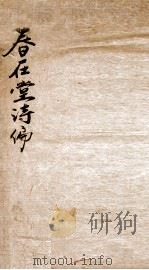 春在堂詩編
研狗
mtoou.info